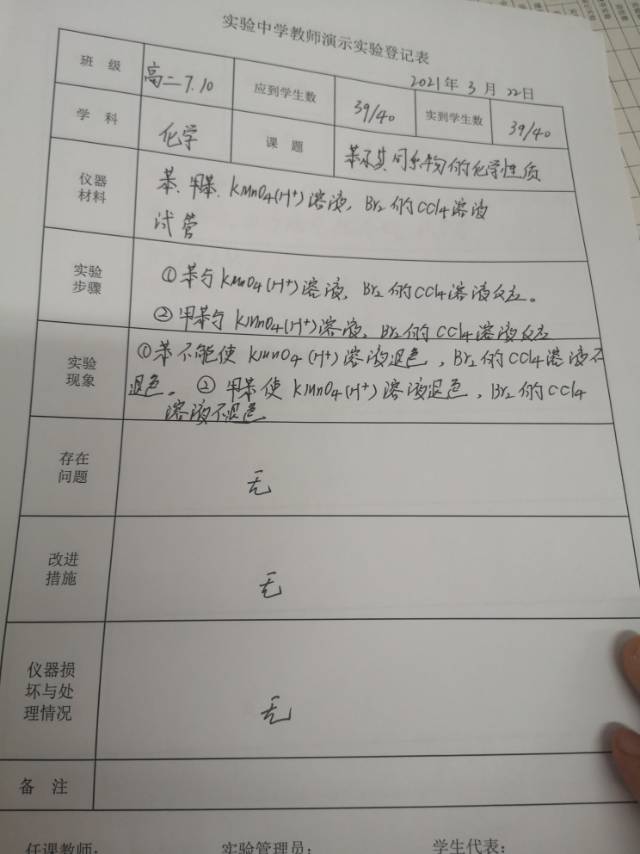 实验中学教师演示实验登记表
2021年 3 月 22日
班 级 高二7.10 应到学生数 39/40 实到学生数 39/40
学 科 化学 课 题 苯及其同系物的化学性质
仪器
材料
苯、甲苯、KMnO4(H+)溶液、Br2的CCl4溶液
试管
实验
步骤
①苯与KMnO4(H+)溶液、Br2的CCl4溶液反应。
②甲苯与KMnO4(H+)溶液、Br2的CCl4溶液反应
实验
现象
①苯不能使KMnO4(H+)溶液退色，Br2的CCl4溶液不
退色。②甲苯使KMnO4(H+)溶液退色，Br2的CCl4
溶液不退色
存在
问题
无
改进
措施
无
仪器损
坏与处
理情况
无
备 注
任课教师： 实验管理员： 学生代表：